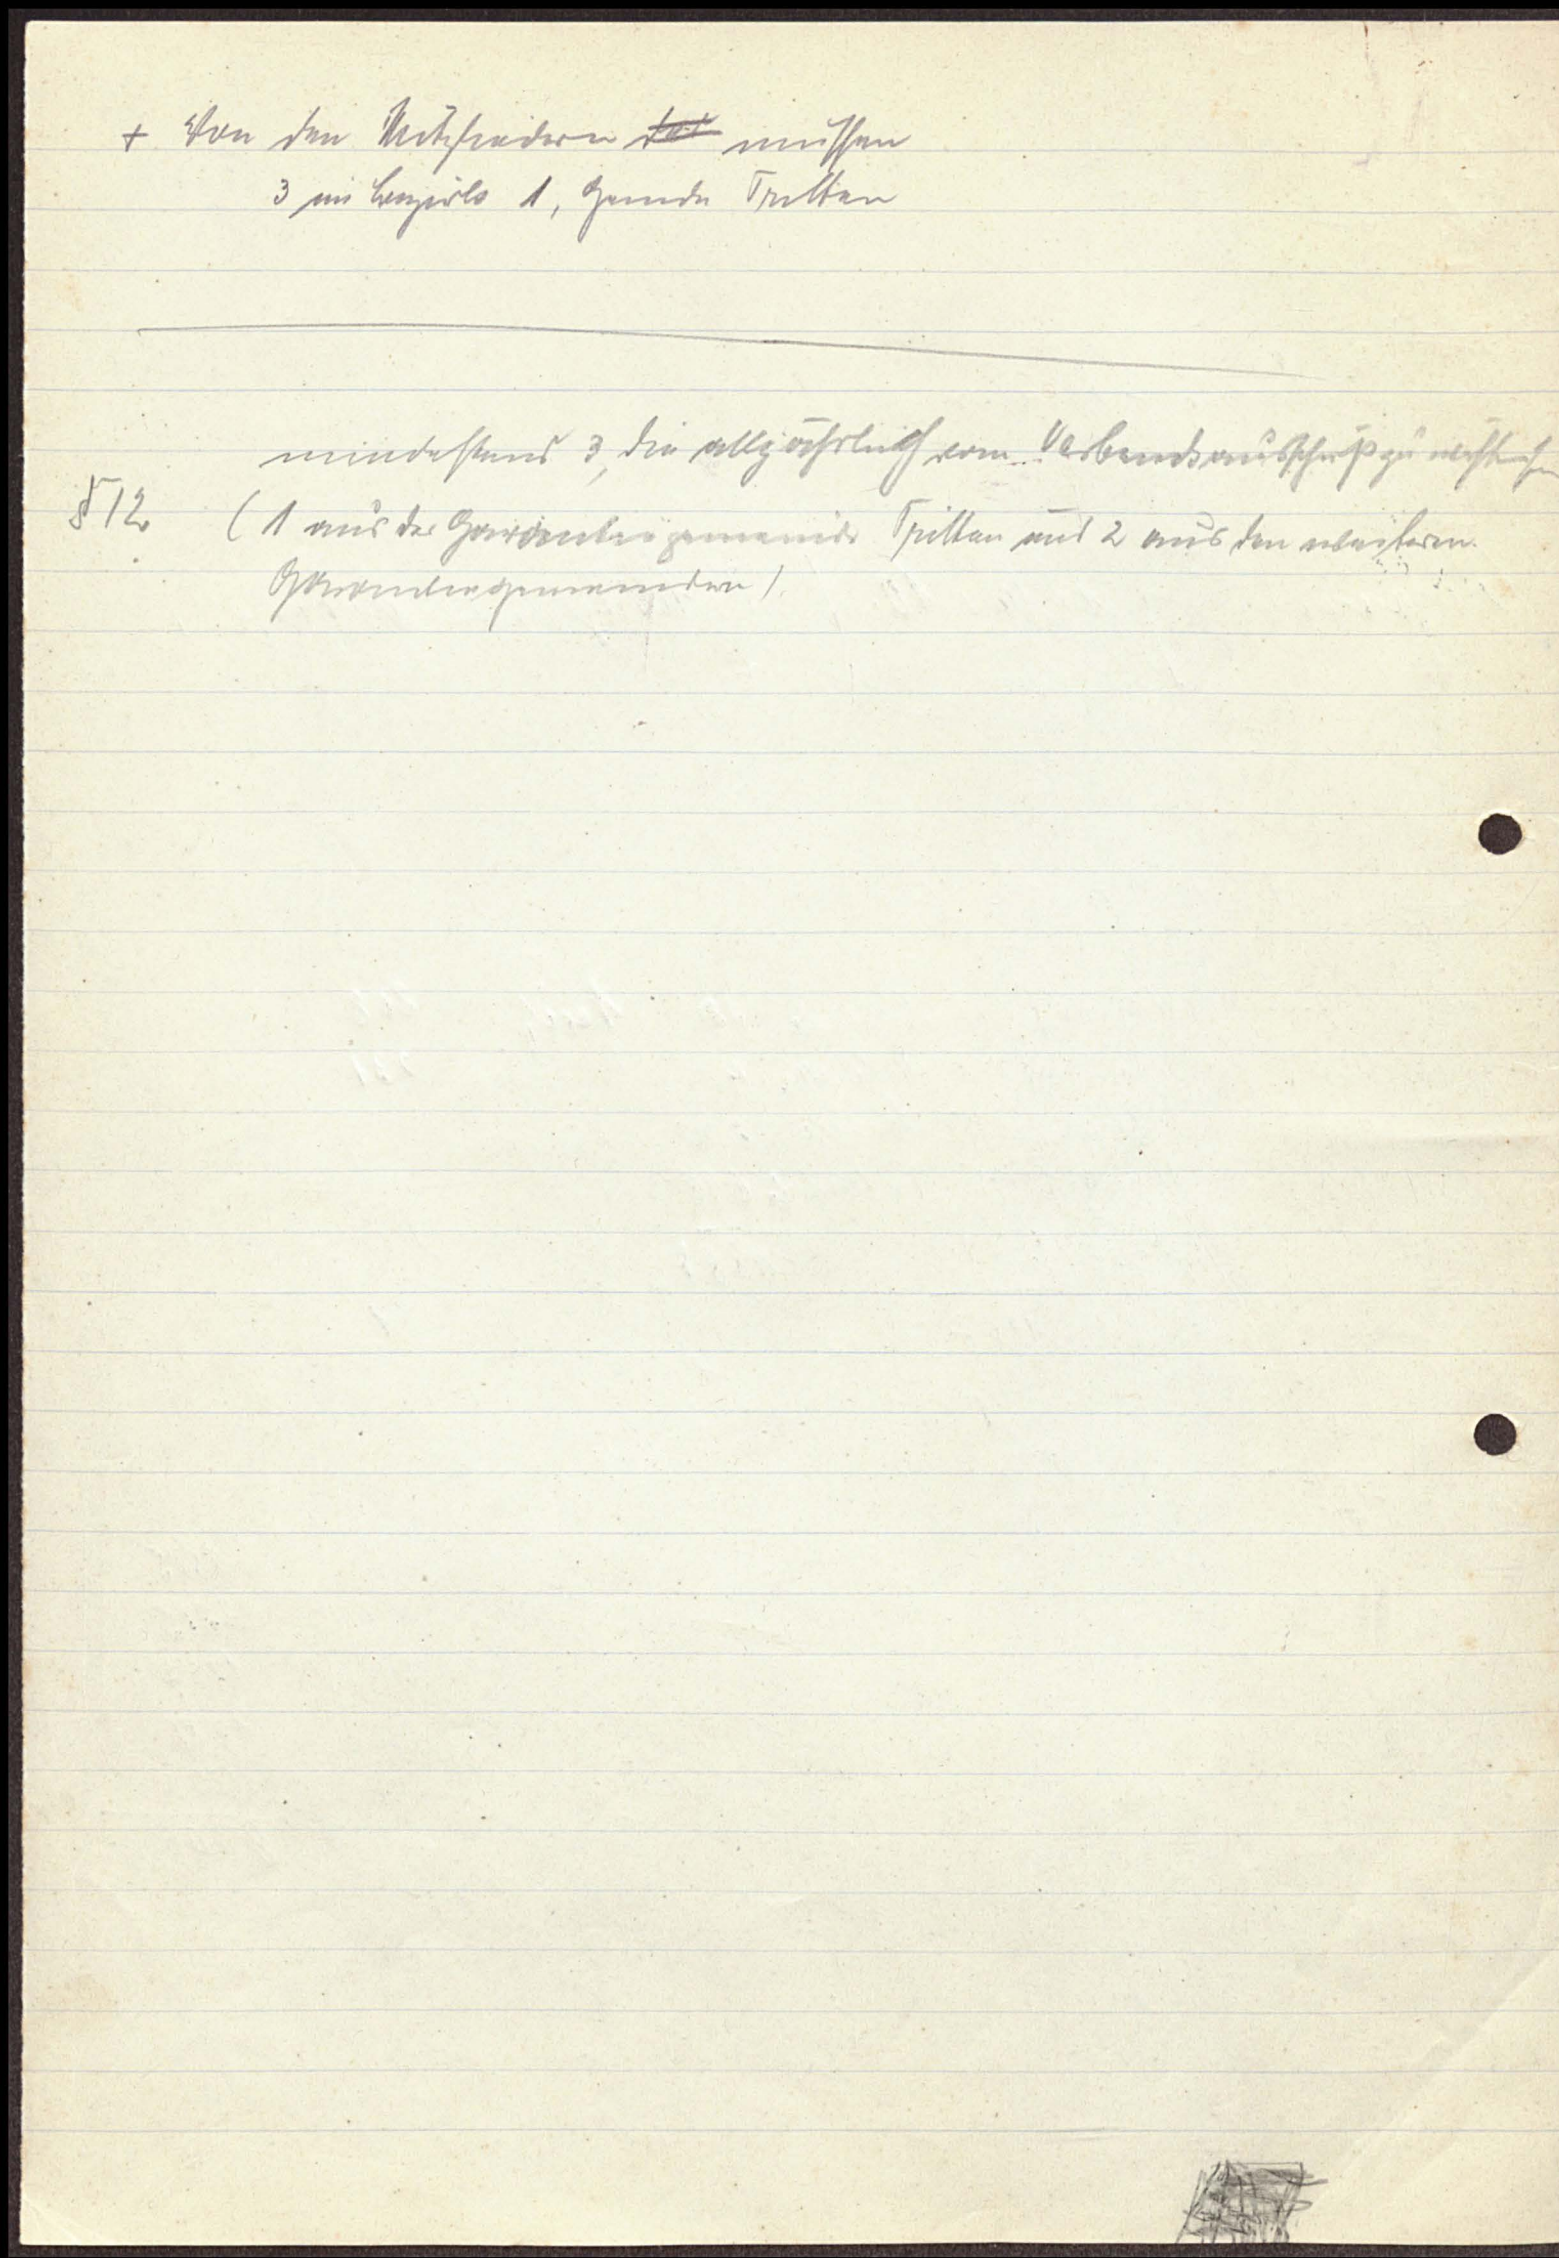 + Von den Mitgliedern müssen
3 im Bezirk 1, Trittau
mindestens 3, die alljährlich vom Verbandsausschuß zu wählen
§ 12 (1 aus der Garantiegemeinde Trittau und 2 aus den weiteren
Garantiegemeinden).